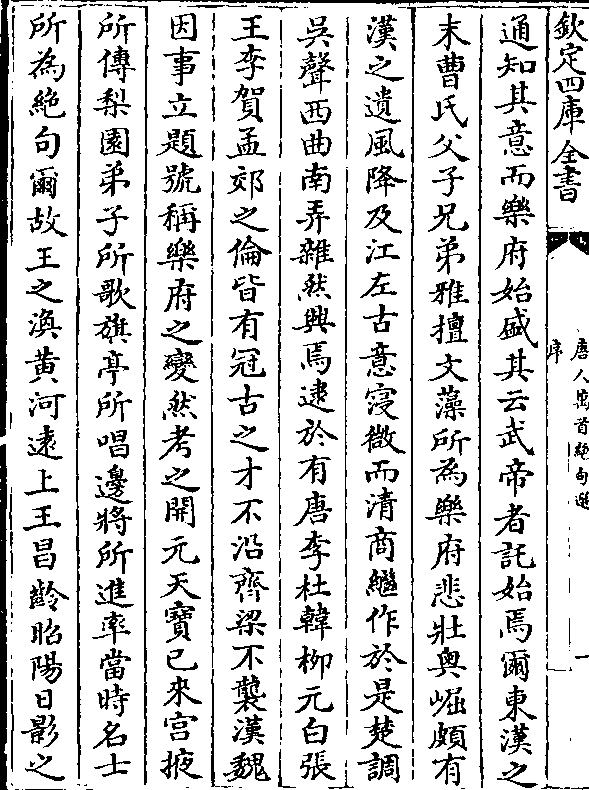 欽定四庫全書
唐人萬首絶句選
序
一
通知其意而樂府始盛其云武帝者託始焉爾東漢之
末曹氏父子兄弟雅擅文藻所為樂府悲壯奥崛頗有
漢之遺風降及江左古意寖微而清商繼作於是楚調
吳聲西曲南弄雜然興焉逮於有唐李杜韓柳元白張
王李賀孟郊之倫皆有冠古之才不沿齊梁不襲漢魏
因事立題號稱樂府之變然考之開元天寶已來宫掖
所傳梨園弟子所歌旗亭所唱邊將所進率當時名士
所為絶句爾故王之渙黄河逺上王昌齡昭陽日影之